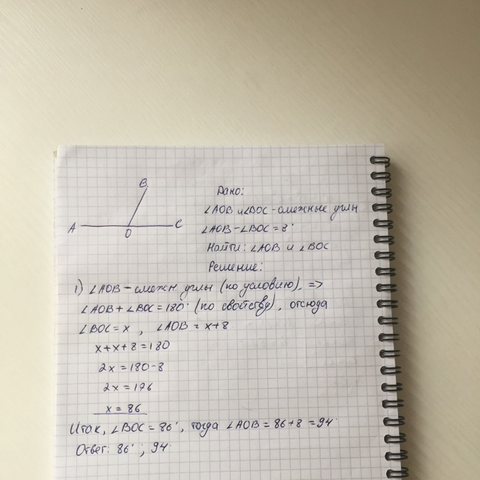 B
A O C
Дано:
∠AOB и ∠BOC - смежные углы
∠AOB - ∠BOC = 8°
Найти: ∠AOB и ∠BOC
Решение:
1) ∠AOB - смежн углы (по условию), =>
∠AOB + ∠BOC = 180° (по свойству), отсюда
∠BOC = x, ∠AOB = x+8
x+x+8=180
2x=180-8
2x=176
x=86
Итак, ∠BOC = 86°, тогда ∠AOB = 86+8=94°
Ответ: 86°; 94°